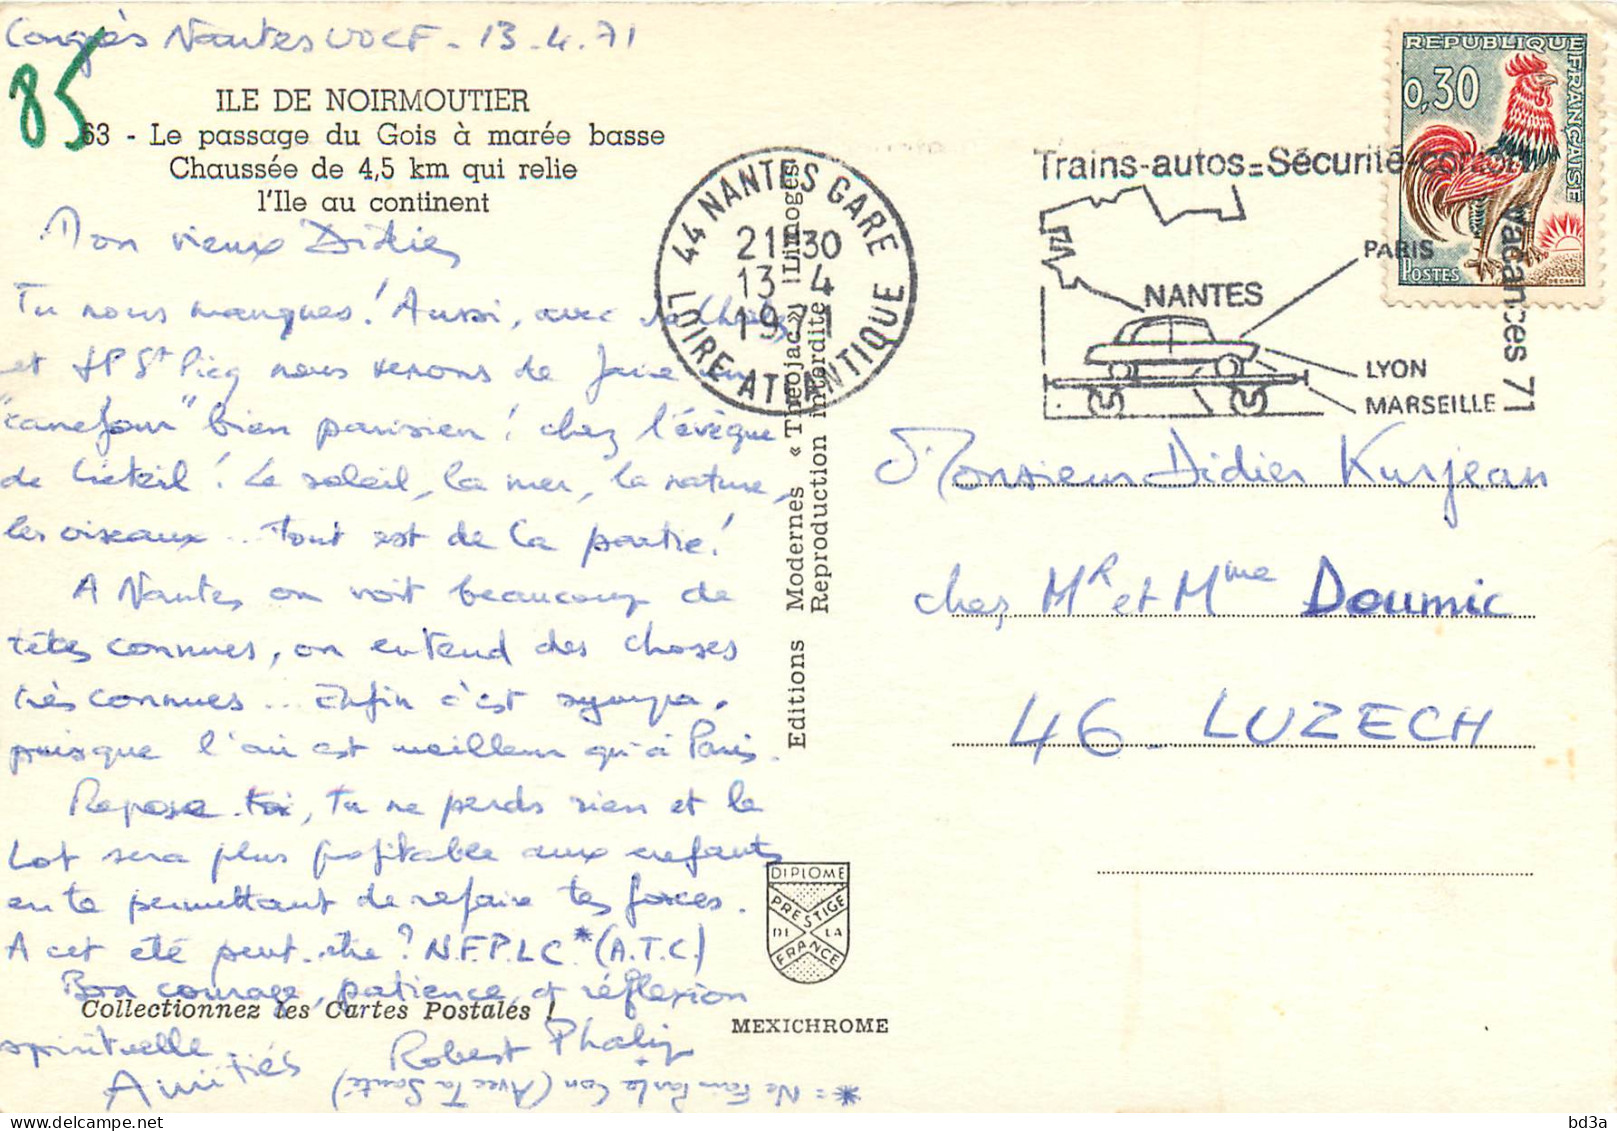 Congrès Nantes UOCF - 13.4.71
85
ILE DE NOIRMOUTIER
63 - Le passage du Gois à marée basse
Chaussée de 4,5 km qui relie
l'Ile au continent
Mon vieux Didier
Tu nous manques! Aussi, avec
et JP St Picq nous venons de faire un
"carrefour" bien parisien! chez l'évêque
de Créteil! Le soleil, la mer, la nature,
les oiseaux... Tout est de la partie!
A Nantes on voit beaucoup de
têtes connues, on entend des choses
très connues... Enfin c'est sympa,
puisque l'air est meilleur qu'à Paris.
Repose-toi, tu ne perds rien et le
Lot sera plus profitable aux enfants
en te permettant de refaire tes forces.
A cet été peut-être? N.F.P.L.C* (A.T.C.)
Bon courage, patience, et réflexion
spirituelle
Amitiés Robert Phalip
*= Ne Fais Pas Le Con (Avec Ta Santé)
Collectionnez les Cartes Postales !
Editions Modernes « Théojac » Limoges
Reproduction interdite
DIPLOME
PRESTIGE
DE LA
FRANCE
MEXICHROME
44 NANTES GARE
21H30
13-4
1971
LOIRE ATLANTIQUE
Trains-autos=Sécurité-confort
Vacances 71
PARIS
NANTES
LYON
MARSEILLE
REPUBLIQUE FRANÇAISE
0,30
POSTES
DECARIS
Monsieur Didier Kurjean
chez Mr et Mme Doumic
46 - LUZECH